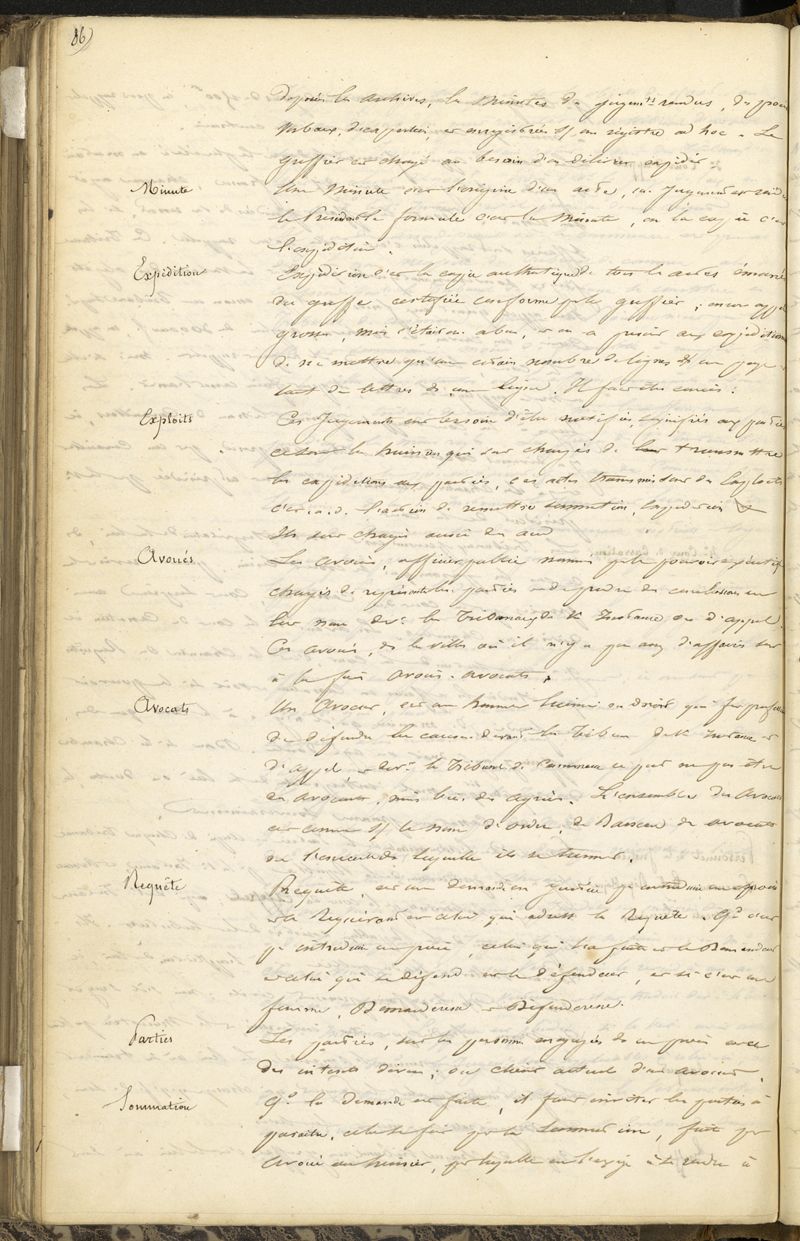 86)
les archives, les Minutes de jugem.ts rendus, des procès
verbaux, et enregistrées s/ un registre ad hoc. Le
greffier est chargé au besoin d'en délivrer expédit.
Minute
Une Minute est l'origine d'un acte, un Jugement est rendu
le Président le formule c'est la Minute, on la copie c'est
l'expédition.
Expédition
Expédition c'est la copie authentique de tous les actes émanés
du greffe certifiée conforme p. le greffier ; encore appel
grosse, mais c'était un abus, et on a prescrit aux expéditions
de ne mettre qu'un certain nombre de lignes d/ une page
tant de lettres d/ une ligne. Il faut être concis.
Exploits
Ces Jugements ont besoin d'être notifiés, signifiés aux parties
ce sont les huissiers qui sont chargés de transmettre
les expéditions aux parties, ces actes transmis sont des Exploits
c'est.à.d. l'action de remettre sommation, expédition
Ils sont chargés aussi des
Avoués
Les avoués, officiers publics nommés p. le pouvoir exécutif
chargés de représenter les parties et de prendre des conclusions en
leur nom dev.t les Tribunaux de 1e Instance ou d'appel.
Ces avoués, ds les villes où il n'y a pas assez d'affaires sont
à la fois avoués-avocats.
Avocats
Un Avocat, est un homme licencié en Droit qui fait profession
de défendre les causes devant les Tribun. de 1e Instance et
d'Appel, et dev.t le Tribunal de Commerce ce peut ne pas être
des avocats, mais bien des agréés. L'ensemble des Avocats
est connu s/ le nom d'ordre, de Barreau de avocats
de l'enceinte ds laquelle ils se tiennent.
Requête
Requête, est une demande en justice p. introduire un procès
et le Requérant est celui qui adresse la Requête. Q.d c'est
p. introduire un procès, celui qui l'a faite est le Demandeur
et celui qui se défend est le Défendeur, et si c'est une
femme, Demanderesse et Défenderesse.
Parties
Les parties, sont les personnes engagées ds un procès avec
des intérêts divers ; ou client actuel d'un avocat.
Sommation
Q.d la demande est faite, il faut inviter les parties à
paraître, cela se fait par la sommation, faite par
avoué ou huissier, par laquelle on l'engage à se rendre à